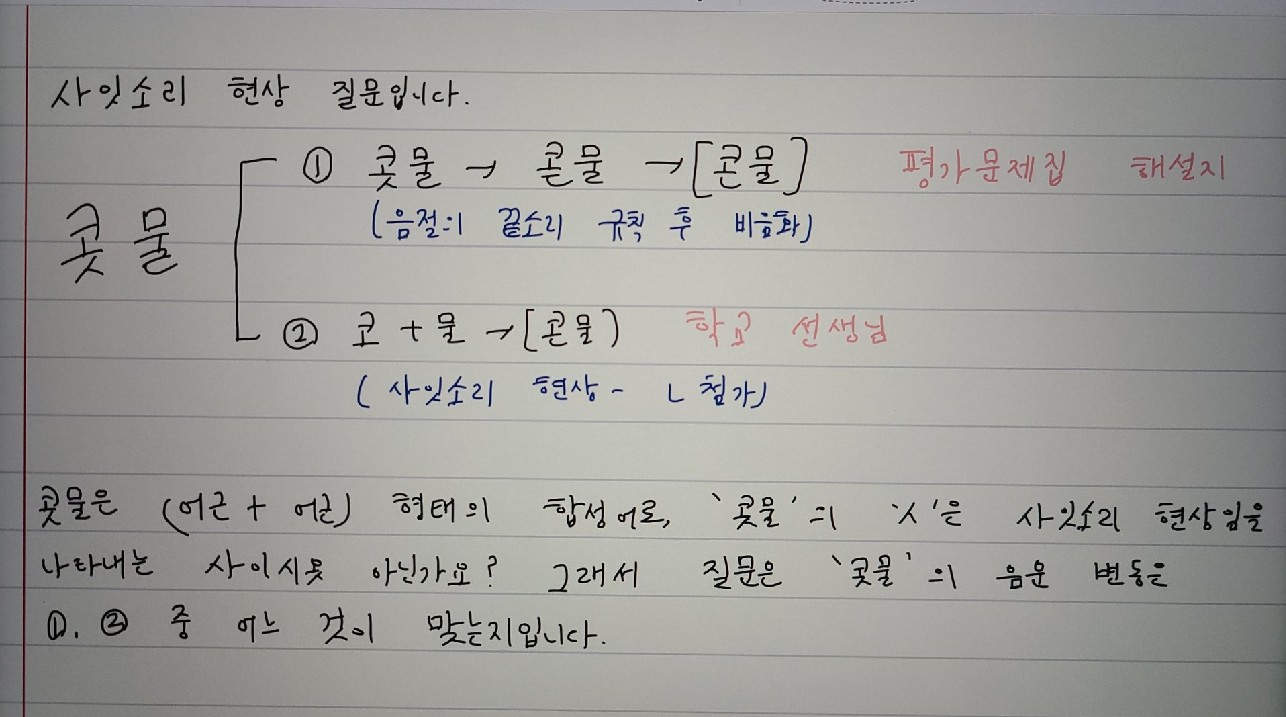 사잇소리 현상 질문입니다.
① 콧물 → 콘물 → [콘물] 평가문제집 해설지
(음절의 끝소리 규칙 후 비음화)
콧물
② 코 + 물 → [콘물] 학교 선생님
( 사잇소리 현상 - ㄴ 첨가)
콧물은 (어근 + 어근) 형태의 합성어로, '콧물'의 'ㅅ'은 사잇소리 현상임을
나타내는 사이시옷 아닌가요? 그래서 질문은 '콧물'의 음운 변동은
①. ② 중 어느 것이 맞는지입니다.